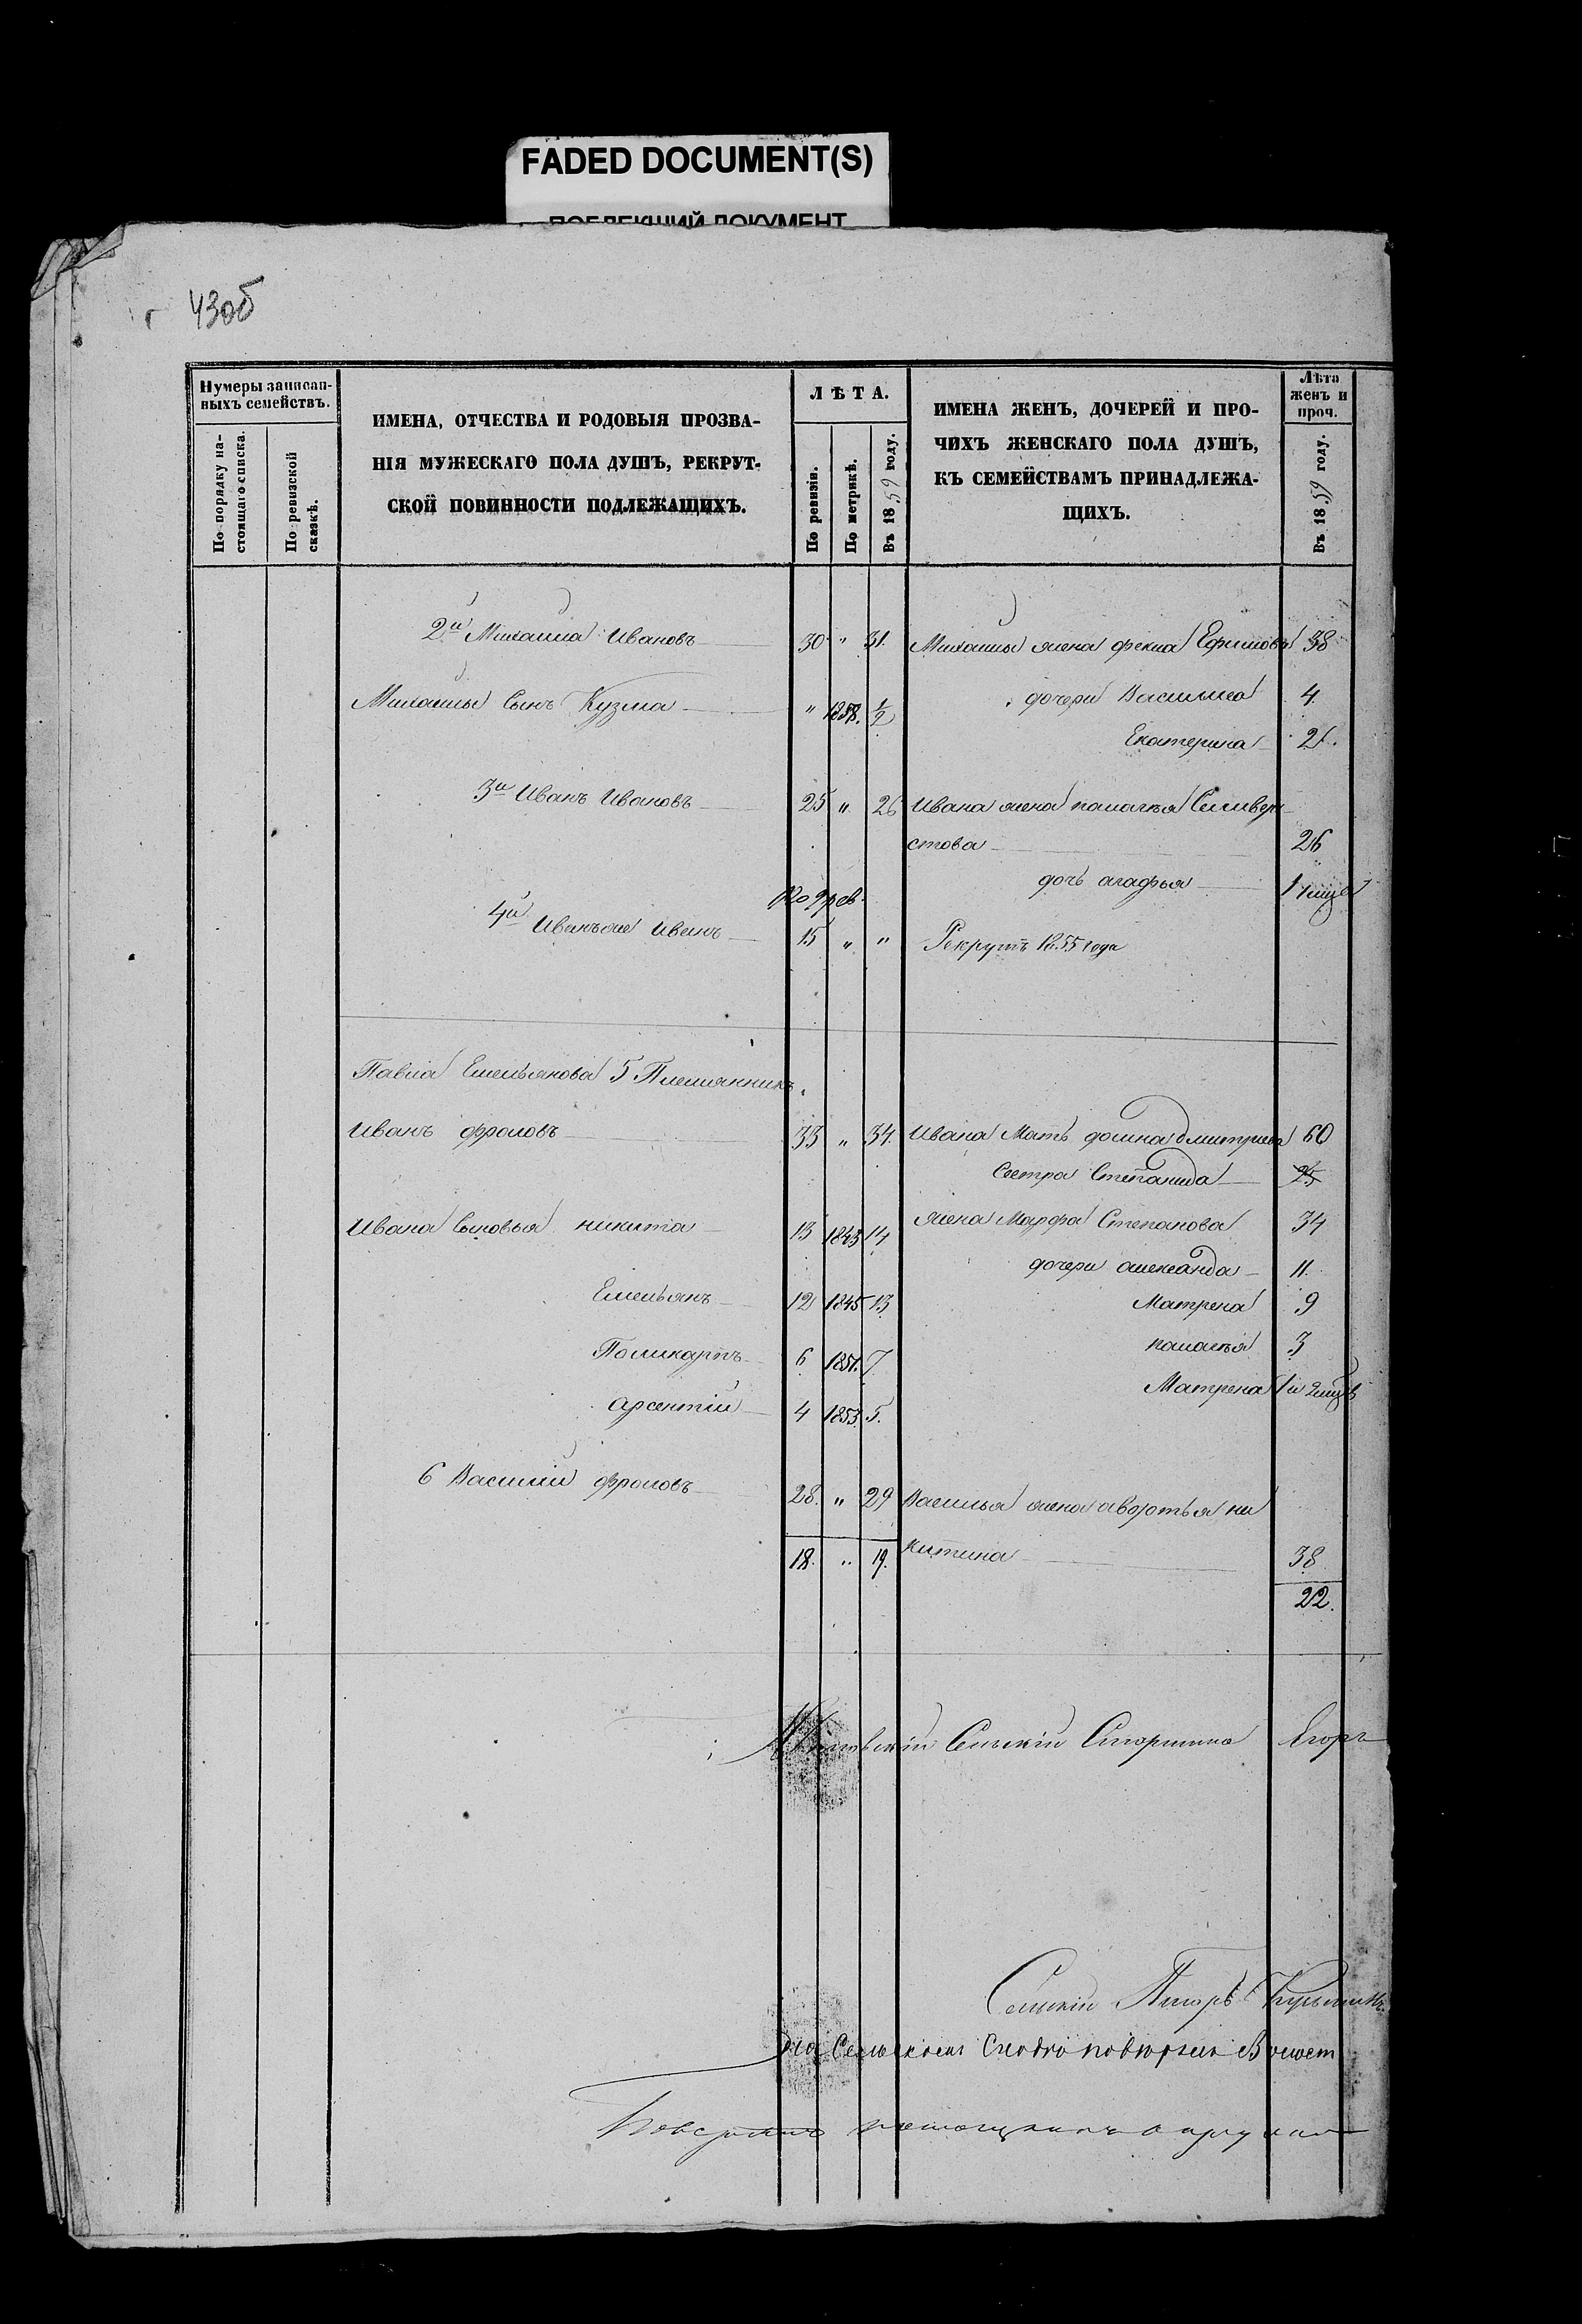 FADED DOCUMENT(S)
ПОБЛЕКШИЙ ДОКУМЕНТ
430б
Нумеры записан-
ныхъ семействъ.
По порядку на-
стоящаго списка.
По ревизской
сказкѣ.
ИМЕНА, ОТЧЕСТВА И РОДОВЫЯ ПРОЗВА-
НІЯ МУЖЕСКАГО ПОЛА ДУШЪ, РЕКРУТ-
СКОЙ ПОВИННОСТИ ПОДЛЕЖАЩИХЪ.
ЛѢТА.
По ревизіи.
По метрикѣ.
Въ 1859 году.
ИМЕНА ЖЕНЪ, ДОЧЕРЕЙ И ПРО-
ЧИХЪ ЖЕНСКАГО ПОЛА ДУШЪ,
КЪ СЕМЕЙСТВАМЪ ПРИНАДЛЕЖА-
ЩИХЪ.
Лѣта
женъ и
проч.
Въ 1859 году.
2й Михаила Ивановъ 30 " 31. Михаилы жена фекла Ефимова 38
Михаилы Сынъ Кузма " 1858. 1/2 дочери Василиса 4.
Екатерина 2.
3й Иванъ Ивановъ 25 " 26 Ивана жена палагѣя Селивер
стова 26
дочь агафья
По 9 рев.
4й Иванъ же Иванъ 15 " " Рекрутъ 1855 года
Павла Емельянова 5 Племянникъ
Иванъ фроловъ 33 " 34. Ивана Мать домна дмитриева 60
Сестра Степанида 25
Ивана Сыновья никита 13 1843 14 жена Марфа Степанова 34
дочери александа 11.
Емельянъ 12 1845 13 Матрена 9
Поликарпъ 6 1851. 7 палагѣя 3
Матрена
арсентiй 4 1853. 5.
6 Василий фроловъ 28. " 29 Василья жена авдотья ни
китина 38
18. " 19.
22.
Сельскiй Старшина Егоръ
Сельскiй Писарь
На Сельскомъ